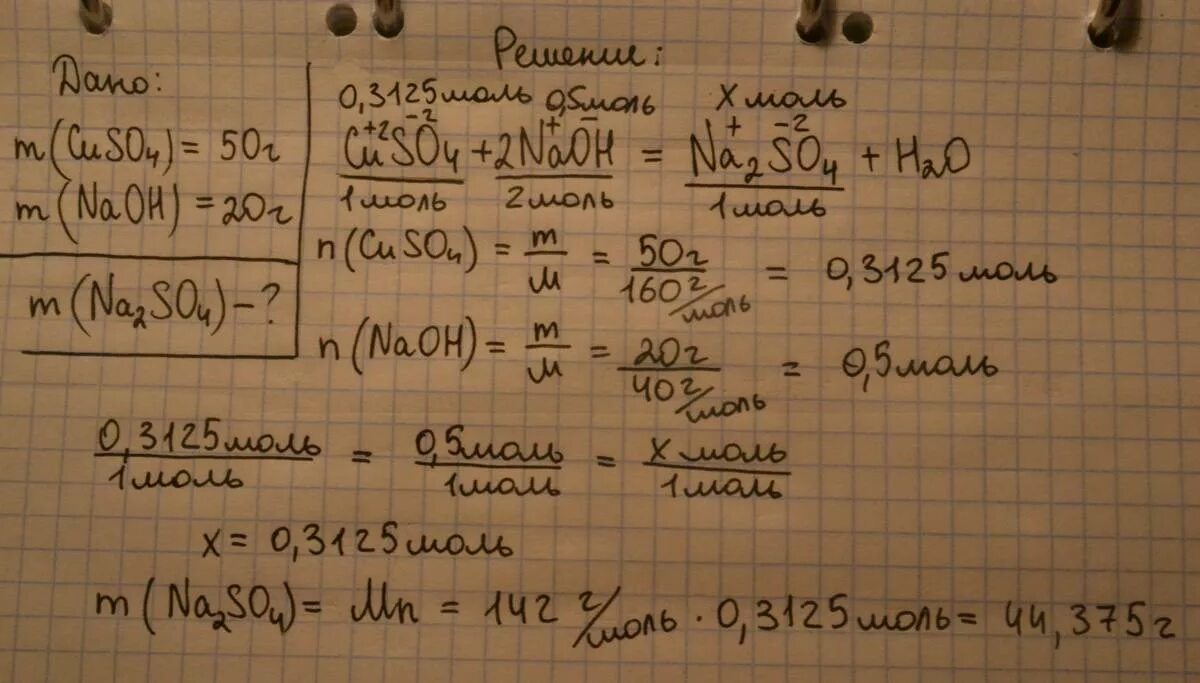 Решение:
Дано:
m(CuSO₄) = 50г
m(NaOH) = 20г
m(Na₂SO₄) – ?
0,3125моль 0,5моль x моль
Cu⁺²SO₄⁻² + 2Na⁺OH⁻ = Na₂⁺SO₄⁻² + H₂O
1моль 2моль 1моль
n(CuSO₄) = m/M = 50г/160г/моль = 0,3125моль
n(NaOH) = m/M = 20г/40г/моль = 0,5моль
0,3125моль/1моль = 0,5моль/1моль = x моль/1моль
x = 0,3125моль
m(Na₂SO₄) = Mn = 142 г/моль · 0,3125моль = 44,375г